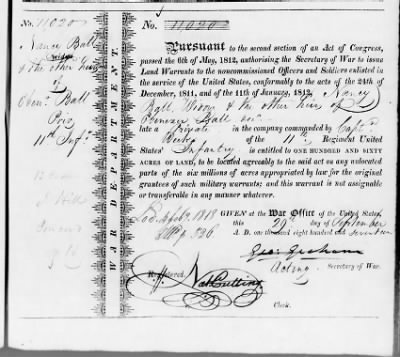 No. 11020
Nancy Ball
widow
& the other heirs
of
Eben.r Ball
Priv
11th Inf.y
WAR DEPARTMENT.
No. 11020
Pursuant to the second section of an Act of Congress,
passed the 6th of May, 1812, authorising the Secretary of War to issue
Land Warrants to the noncommissioned Officers and Soldiers enlisted in
the service of the United States, conformably to the acts of the 24th of
December, 1811, and of the 11th of January, 1812, Nancy
Ball Widow & the other heirs of
Ebenezer Ball dec.d
late a Private in the company commanded by Capt.n
Bertry of the 11th Regiment United
States' Infantry is entitled to ONE HUNDRED AND SIXTY
ACRES OF LAND, to be located agreeably to the said act on any unlocated
parts of the six millions of acres appropriated by law for the original
grantees of such military warrants; and this warrant is not assignable
or transferable in any manner whatever.
GIVEN at the War Office of the United States,
this 29th day of September
A. D. one thousand eight hundred and seventeen
Geo: Graham
Acting Secretary of War.
Registered,
Nat Cutting
Clerk.